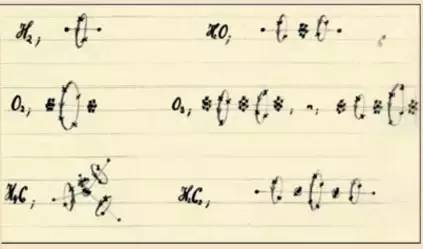 H₂, HO;
O₂, O₃,
H₄C, H₂C₂,